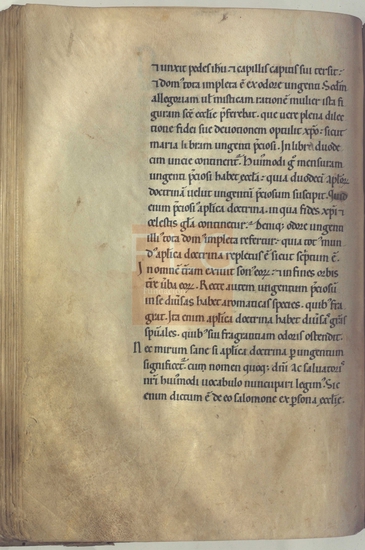 ⁊ unxit pedes ihu ⁊ capillis capitis sui tersit.
⁊ dom' tota impleta ē ex odore ungenti. Scdm
allegoriam ul misticam rationē mulier ista fi
guram scē ecclīe p̄ferebat. que uere plena dilec
tione fidei sue deuotionem optulit xpō. sicut
maria libram ungenti p̄ciosi. In libra duode
cim uncie continent'. Hui'modi g° mensuram
ungenti p̄ciosi habet ecclā. quia duodecī aplōꝝ
doctrinā uelut ungentū p̄ciosum suscepit. Quid
enim p̄ciosi' aplīca doctrina. in qua fides xpī ⁊
celestis glā continetur. Deniq; odore ungenti
illi' tota dom' impleta refertur. quia tot' mun
d' aplīca doctrina repletus ē sicut scptum ē.
In omnē terram exiuit son' eoꝝ. ⁊ in fines orbis
terre uba eoꝝ. Recte autem ungentum p̄ciosū
in se diusas habet aromaticas species. quib' fra
grat. Ita enim aplīca doctrina habet diusas grās
spūales. quib' sui fragrantiam odoris ostendit.
Nec mirum sane si aplīca doctrina p ungentum
significet'. cum nomen quoq; dnī ac saluatoris
nrī hui'modi uocabulo nuncupari legim'. Sic
enim dictum ē de eo salomone ex psona ecclīe.